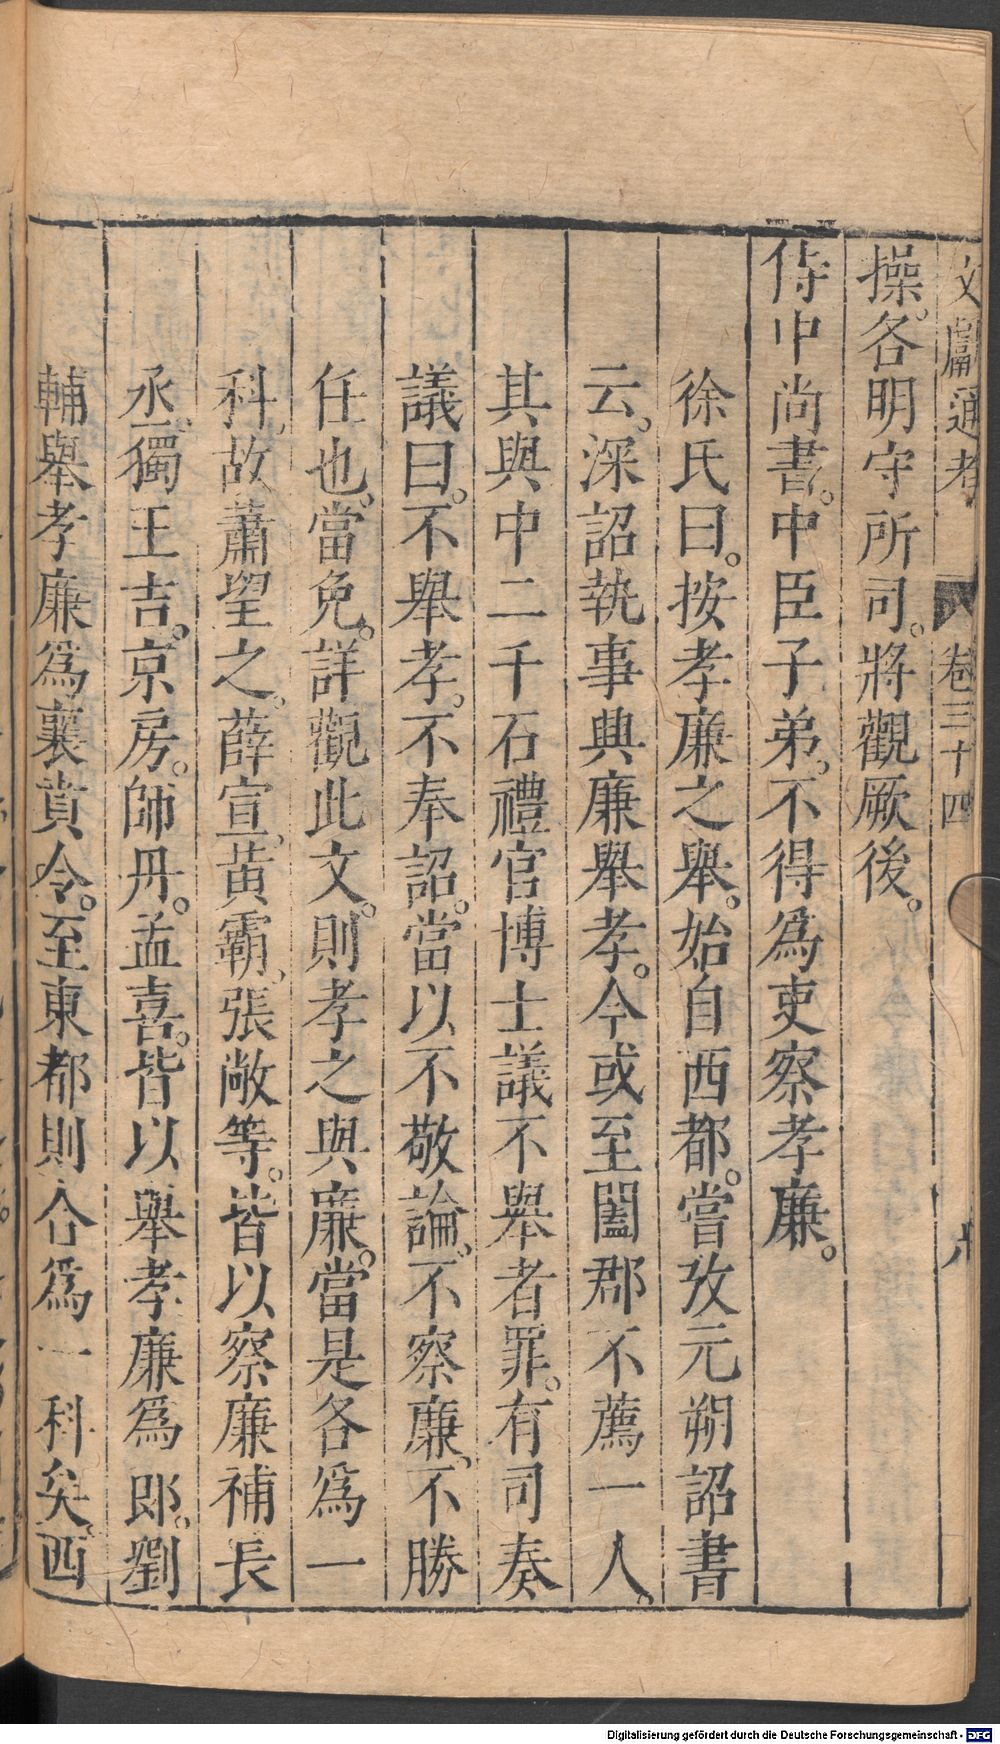 文獻通考 卷三十四
操。各明守所司。將觀厥後。
侍中尚書。中臣子弟。不得爲吏察孝廉。
徐氏曰。按孝廉之舉。始自西都。嘗攷元朔詔書
云。深詔執事興廉舉孝。今或至闔郡不薦一人。
其與中二千石禮官博士議不舉者罪。有司奏
議曰。不舉孝。不奉詔。當以不敬論。不察廉、不勝
任也。當免。詳觀此文。則孝之與廉。當是各爲一
科、故蕭望之、薛宣、黃霸、張敞等。皆以察廉補長
丞。獨王吉。京房。師丹。孟喜。皆以舉孝廉爲郎。劉
輔舉孝廉爲襄賁令。至東都則合爲一科矣。西
Digitalisierung gefördert durch die Deutsche Forschungsgemeinschaft - DFG